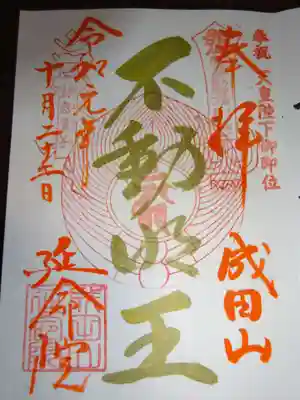 奉祝 天皇陛下御即位
奉拝
成田山
不動明王
令和元年
十月二十二日
延命院